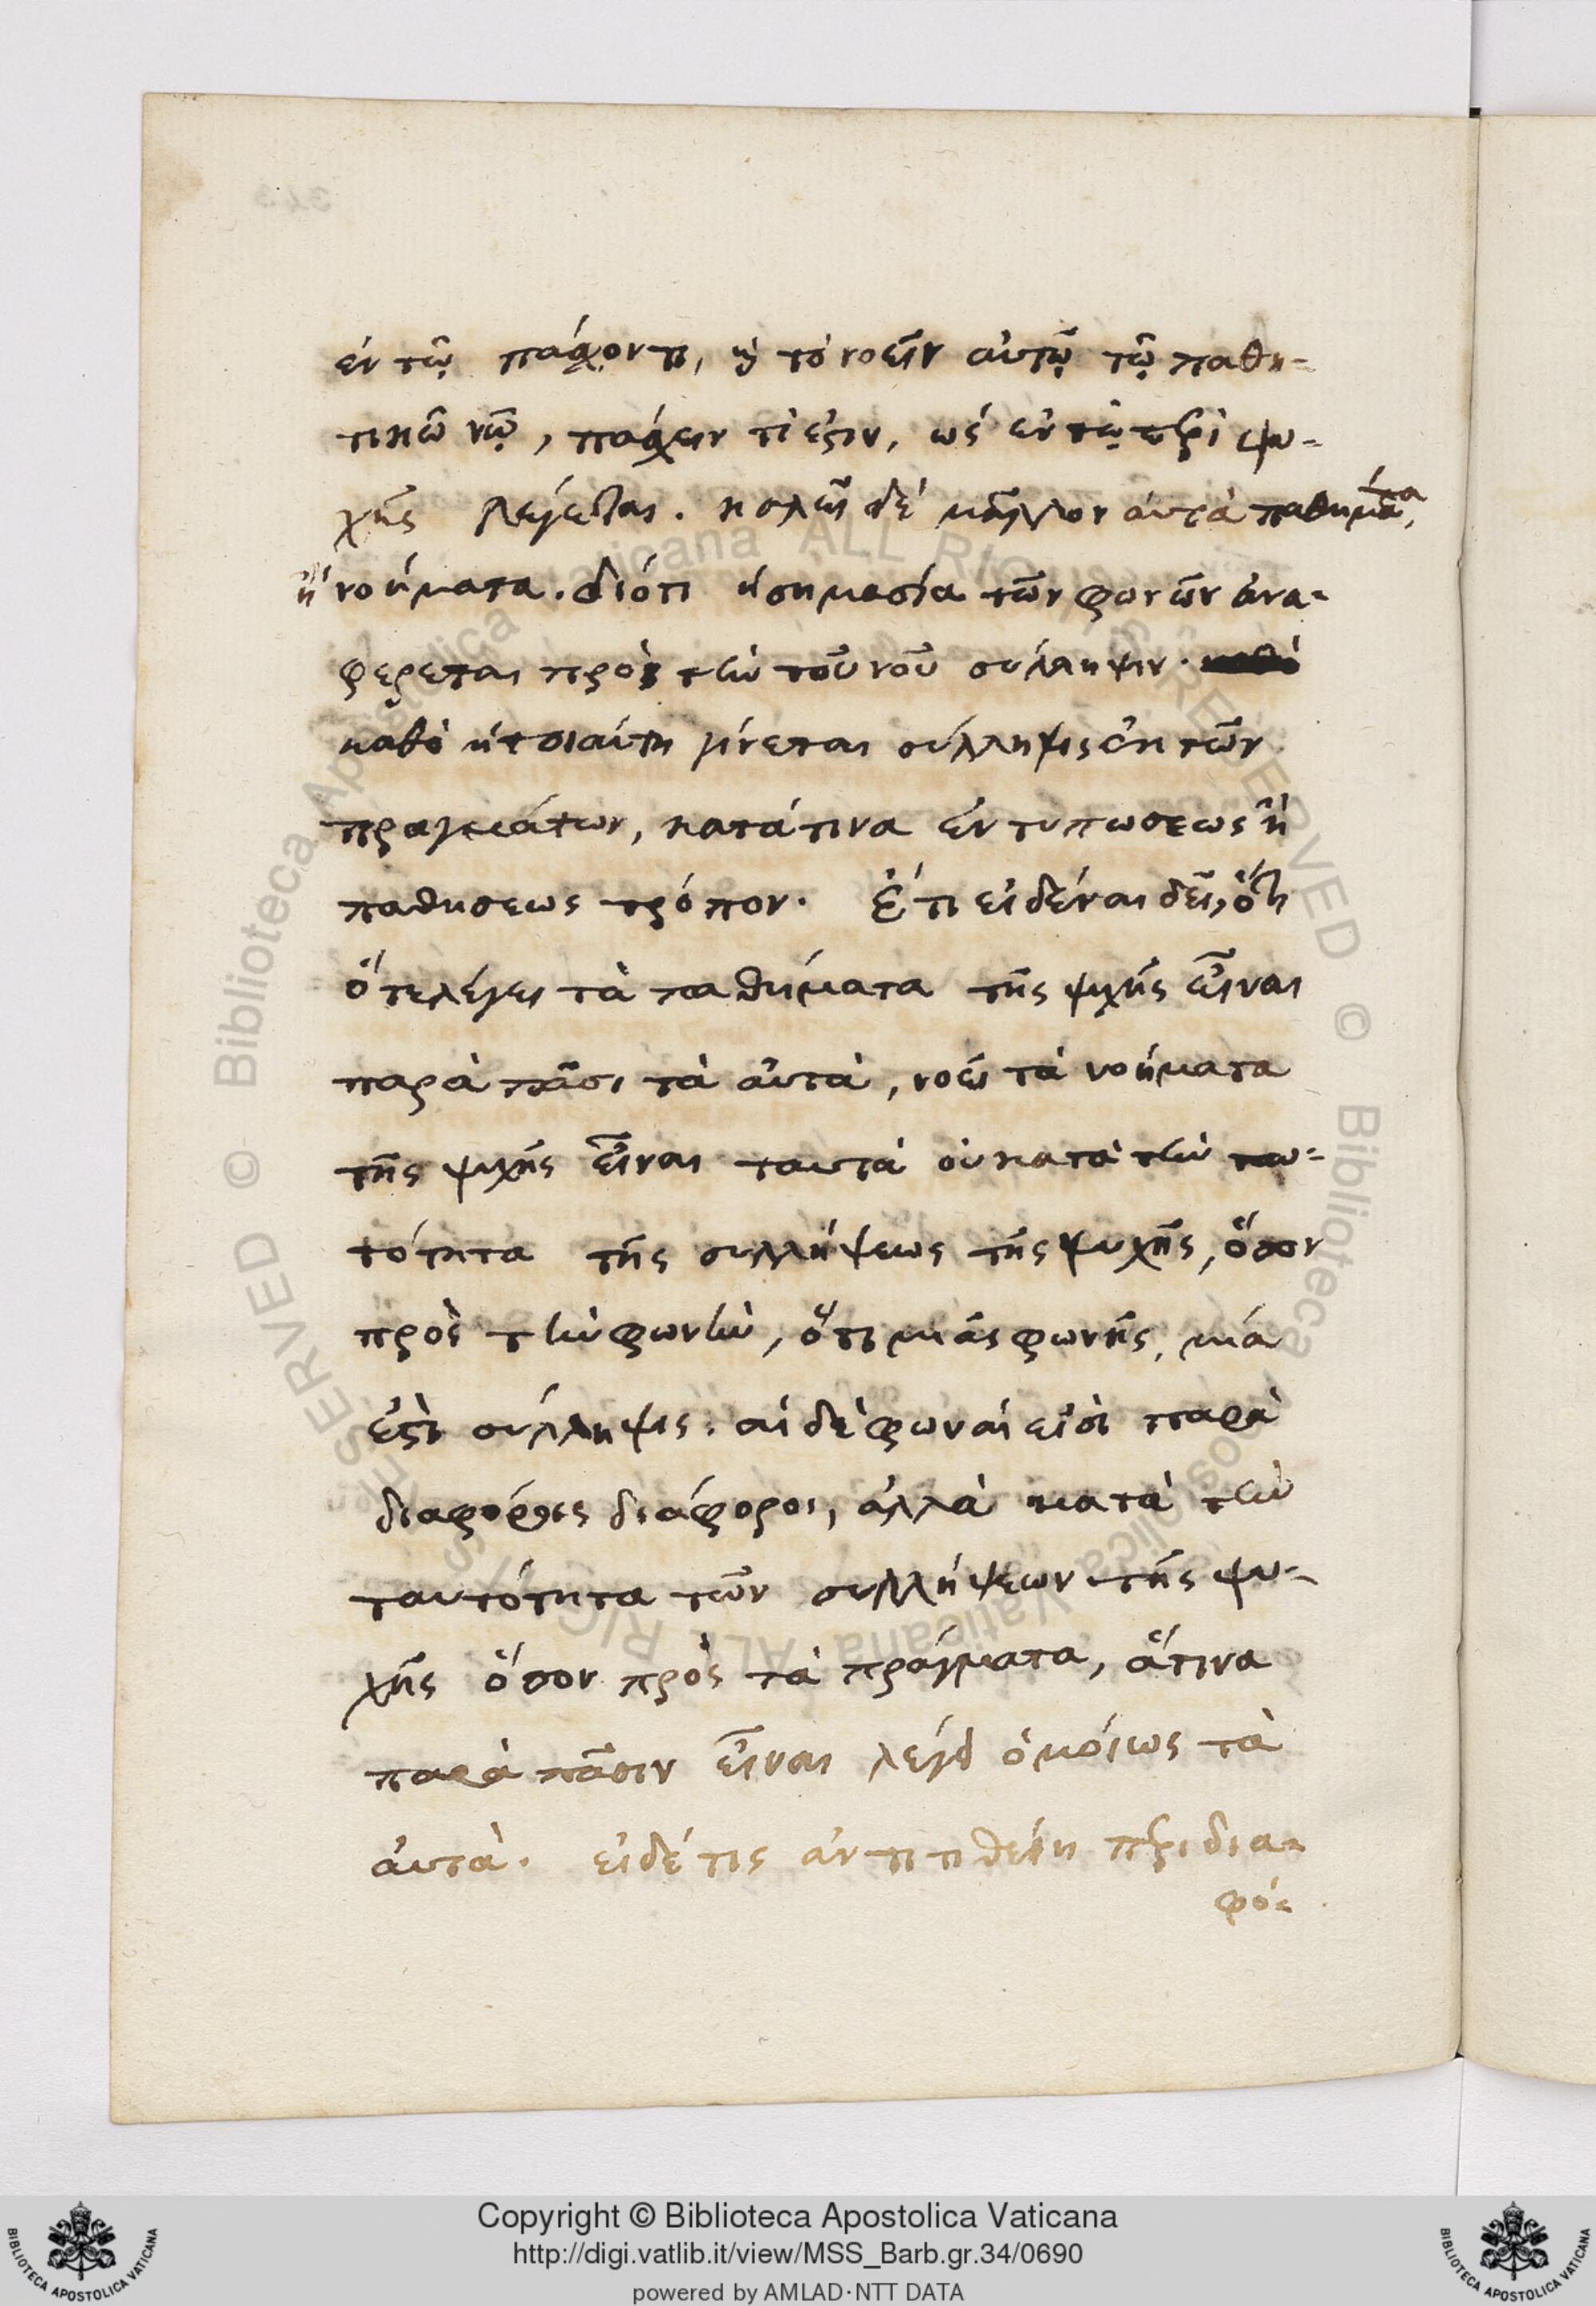 ἐν τῷ πάσχοντι, ἢ τὸ νοεῖν αὐτῷ τῷ παθη-
τικῷ νῷ, πάσχειν τί ἐστιν, ὡς ἐν τῷ περὶ ψυ-
χῆς λέγεται. καλεῖ δὲ μᾶλλον αὐτὰ παθήματα,
ἢ νοήματα. διότι ἡ σημασία τῶν φωνῶν ἀνα-
φέρεται πρὸς τὴν τοῦ νοῦ σύλληψιν.
καθὸ ἡ τοιαύτη γίνεται σύλληψις ἐκ τῶν
πραγμάτων, κατά τινα ἐντυπώσεως ἢ
παθήσεως τρόπον. Ἔτι εἰδέναι δεῖ, ὅτι
ὅτε λέγει τὰ παθήματα τῆς ψυχῆς εἶναι
παρὰ πᾶσι τὰ αὐτὰ, νοεῖ τὰ νοήματα
τῆς ψυχῆς εἶναι ταυτὰ οὐ κατὰ τὴν ταυ-
τότητα τῆς συλλήψεως τῆς ψυχῆς, ὅσον
πρὸς τὴν φωνὴν, ὅτι μιᾶς φωνῆς, μία
ἐστὶ σύλληψις· αἱ δὲ φωναὶ εἰσὶ παρὰ
διαφόροις διάφοροι, ἀλλὰ κατὰ τὴν
ταυτότητα τῶν συλλήψεων τῆς ψυ-
χῆς ὅσον πρὸς τὰ πράγματα, ἅτινα
παρὰ πᾶσιν εἶναι λέγει ὁμοίως τὰ
αὐτά. εἰ δέ τις ἀντιτιθείη περὶ δια-
φό-
Copyright © Biblioteca Apostolica Vaticana
http://digi.vatlib.it/view/MSS_Barb.gr.34/0690
powered by AMLAD·NTT DATA